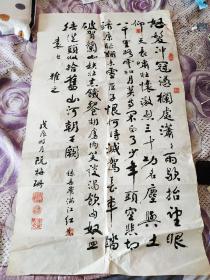 怒髮沖冠憑欄處瀟瀟雨歇抬望眼
仰天長嘯壯懷激烈三十功名塵與土
八千里路雲和月莫等閒白了少年頭空悲切
靖康恥猶未雪臣子恨何時滅駕長車踏
破賀蘭山缺壯志飢餐胡虜肉笑談渴飲匈奴血
待從頭收拾舊山河朝天闕 錄岳飛滿江紅
戊辰 阮梅珊